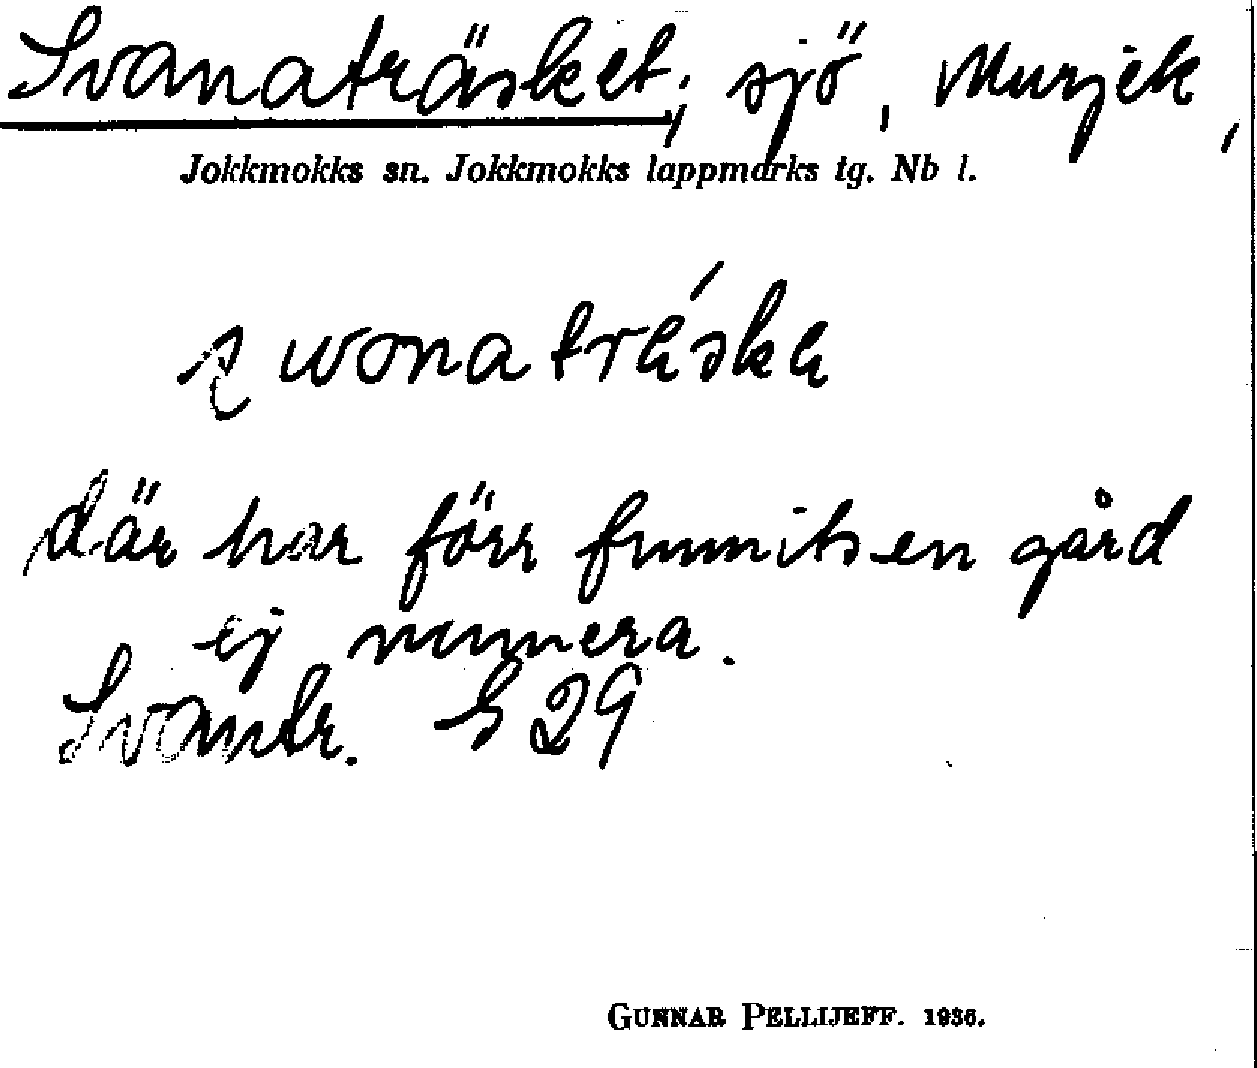 Svanaträsket, sjö, Murjek,
Jokkmokks sn. Jokkmokks lappmarks tg. Nb l.
wonatráska
där har förr funnits en gård
ej numera.
Svantr. S 29
GUNNAR PELLIJEFF. 1936.